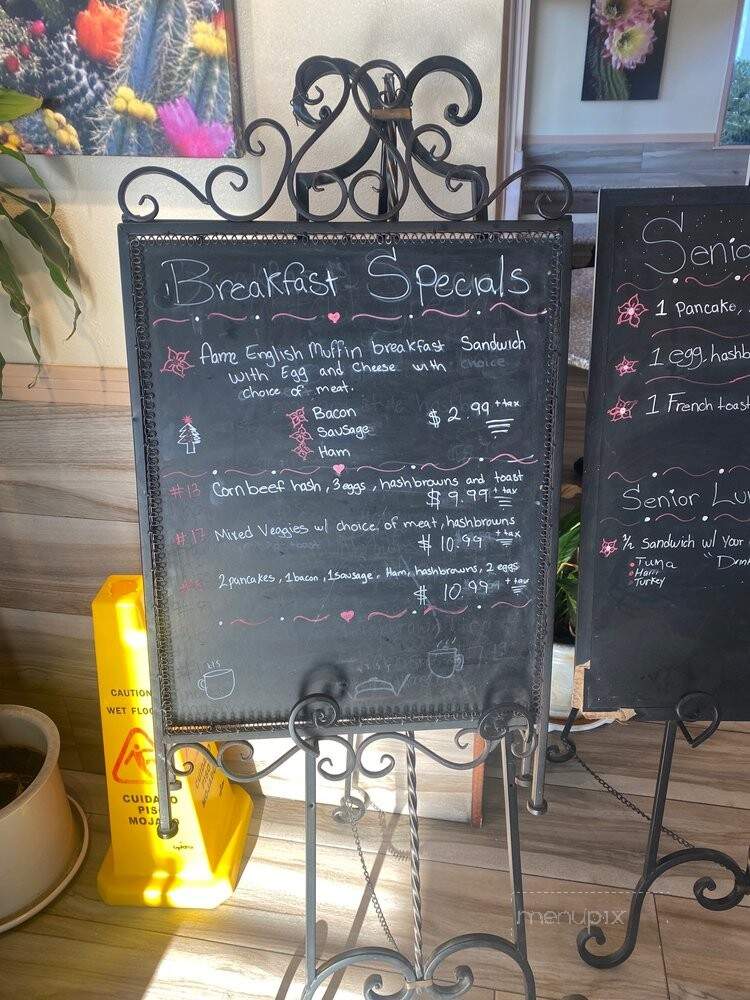 Breakfast Specials
Aame English Muffin breakfast Sandwich
with Egg and Cheese with choice
choice of meat.
Bacon
Sausage
Ham
$ 2.99 + tax
#13 Cornbeef hash, 3 eggs, hashbrowns and toast
$ 9.99 + tax
#17 Mixed Veggies w/ choice of meat, hashbrowns
$ 10.99 + tax
2 pancakes, 1 bacon, 1 sausage, Ham, hashbrowns, 2 eggs
$ 10.99 + tax
Senio
1 Pancake,
1 egg, hashb
1 French toast
Senior Lu
1/2 Sandwich w/ Your
Tuna
Ham
Turkey
"Drin
CAUTION
WET FLOO
CUIDADO
PISO
MOJA
menupix